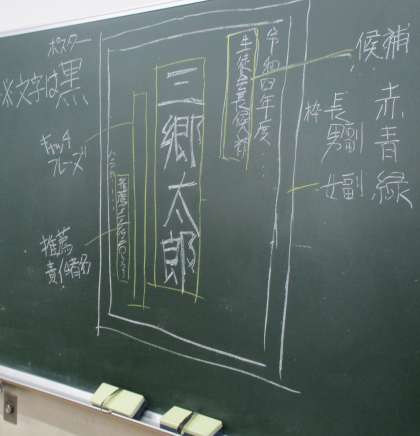 候補
赤青緑
枠
長
男副
女副
令和四年度
生徒会長候補
三郷太郎
ポスター
※文字は黒
キャッチ
フレーズ
推薦
責任者名